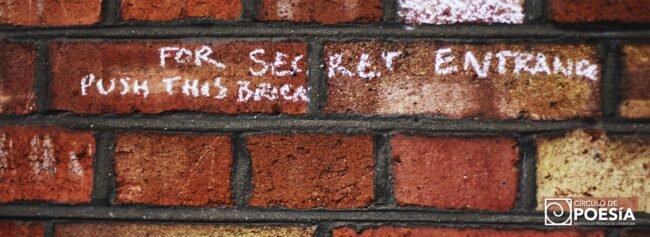 FOR SECRET ENTRANCE
PUSH THIS BRICK
CÍRCULO DE
POESÍA
REVISTA ELECTRÓNICA DE LITERATURA